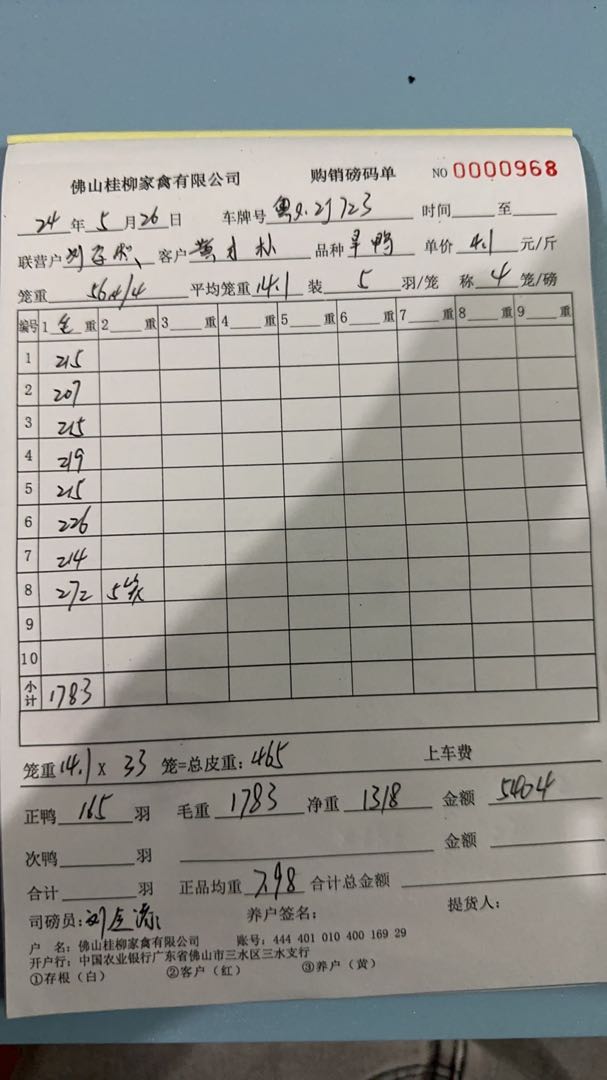 佛山桂柳家禽有限公司 购销磅码单 NO 0000968
24 年 5 月 26 日 车牌号 时间 至
联营户 客户 品种 旱鸭 单价 4.1 元/斤
笼重 56.4/4 平均笼重 14.1 装 5 羽/笼 称 4 笼/磅
编号 1 毛 重 2 重 3 重 4 重 5 重 6 重 7 重 8 重 9 重
1 215
2 207
3 215
4 219
5 215
6 226
7 214
8 272 5笼
9
10
小计 1783
笼重 14.1 x 33 笼=总皮重: 465 上车费
正鸭 165 羽 毛重 1783 净重 1318 金额 5404
次鸭 羽 金额
合计 羽 正品均重 7.98 合计总金额
司磅员: 养户签名: 提货人:
户 名: 佛山桂柳家禽有限公司 账号: 444 401 010 400 169 29
开户行: 中国农业银行广东省佛山市三水区三水支行
①存根（白） ②客户（红） ③养户（黄）